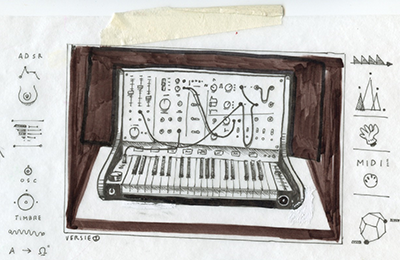 ADSR
OSC
TIMBRE
A → Ω
VERSIE 1
MIDI